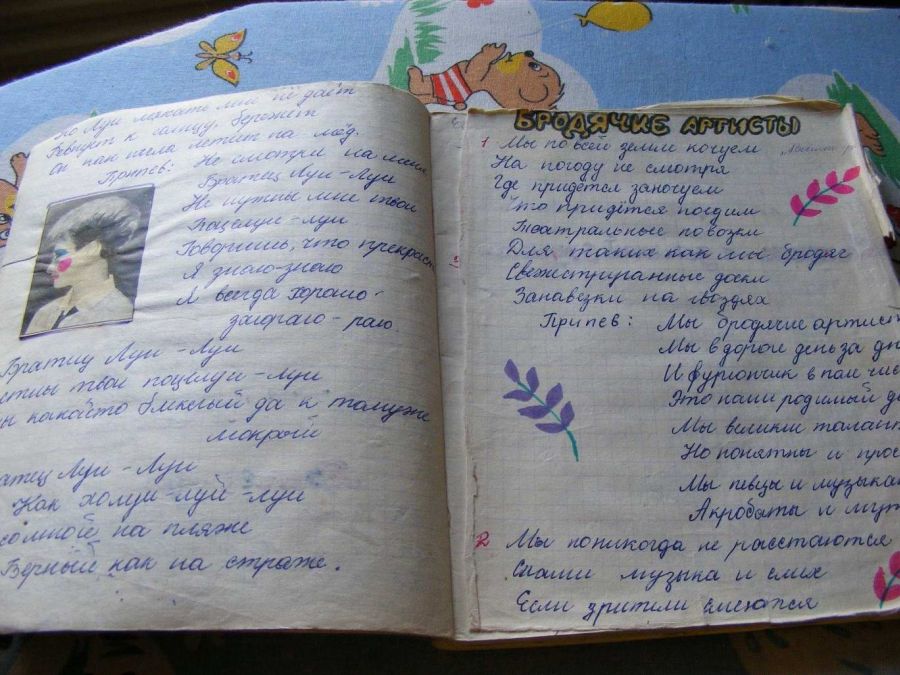 Но Луи лежать мне не даёт
Ревнует к солнцу, бережёт
Он как пчела летит на мёд.
Припев: Не смотри на меня
Братец Луи-Луи
Не нужны мне твои
Поцелуи-луи
Говоришь, что прекрасн
Я знаю-знаю
Я всегда хорошо-
загораю-раю.
Братец Луи-Луи
твои поцелуи-луи
ы какойто блеклый да к томуже
мокрый
атец Луи-Луи
Как холуи-луй-луи
сомной на пляже
Верный как на страже.
БРОДЯЧИЕ АРТИСТЫ
1 Мы по всей земли кочуем
На погоду не смотря
Где придётся заночуем
Что придётся поедим
Театральные повозки
Для таких как мы бродяг
Свежестриганные доски
Занавезки на гвоздях
Припев: Мы бродячие артист
Мы в дороге день за дн
И фургончик в пом чис
Это наш родимый д
Мы великие талант
Но понятны и прос
Мы певцы и музыка
Акробаты и шут
2 Мы поникогда не расстаются
Снами музыка и смех
Если зрители смеются